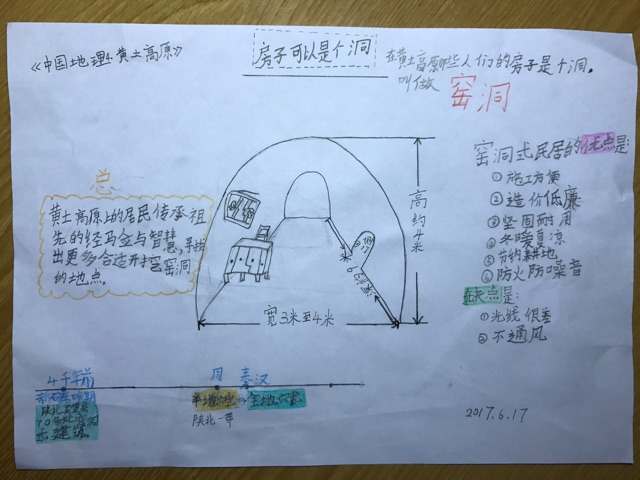 《中国地理4·黄土高原》
房子可以是个洞
在黄土高原那些人们的房子是个洞。
叫做窑洞
窑洞式民居的优点是:
①施工方便
②造价低廉
③坚固耐用
④冬暖夏凉
⑤节约耕地
⑥防火防噪音
缺点是:
①光线很差
②不通风
总
黄土高原上的居民传承祖
先的经马全与智慧,寻找
出更多合适开挖窑洞
的地点。
高约4米
宽3米至4米
4千年前
周
秦汉
陕北一带
2017.6.17